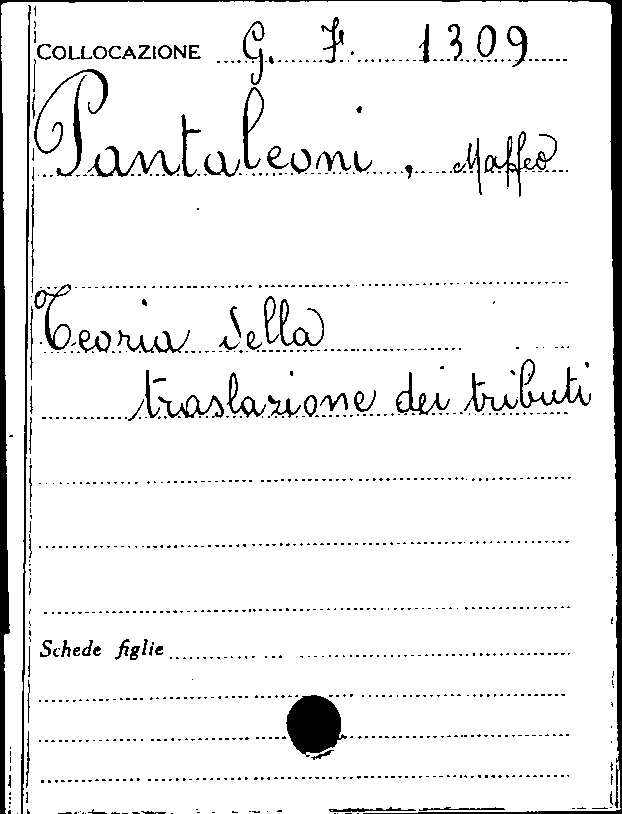 COLLOCAZIONE G. F. 1309
Pantaleoni, Maffeo
Teoria della
traslazione dei tributi
Schede figlie